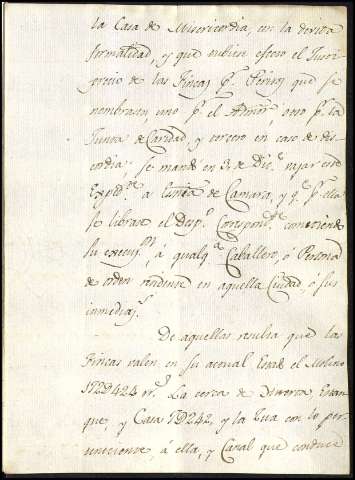 la Casa de Misericordia, en la devida
formalidad, y que hubiere efecto el Justi-
precio de las Fincas pr. Peritos que se
nombrasen, uno pr. el Admor, otro pr. la
Junta de Caridad y tercero en caso de dis-
cordia: se mandó en 3 de Dice. vajar este
Expdte. a Escria. de Camara, y qe. pr. ella
se librase el Despo. Correspondte. cometiendo
su execuon. á qualqa. Caballero, ó Persona
de orden residente en aquella Ciudad, ó sus
inmediaos.
De aquellas resulta que las
Fincas valen en su actual Estado el Molino
1729424 rrs. La cerca de Huerta, Estan-
que, y Casa 79242, y la Isla con lo per-
teneciente, á ella, y Canal que conduce